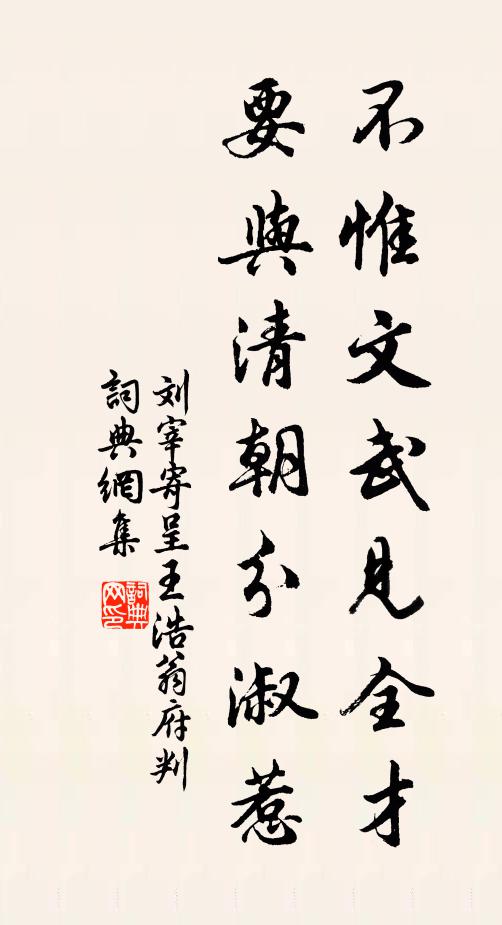 不惟文武見全才
要與清朝分淑惹
刘宰寄呈王浩翁府判
詞典網集
詞典网印